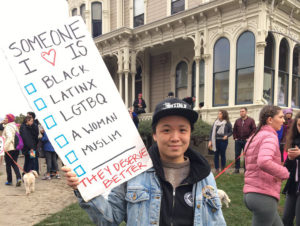 SOMEONE
I ♡ IS
BLACK
LATINX
LGTBQ
A WOMAN
MUSLIM
THEY DESERVE
BETTER